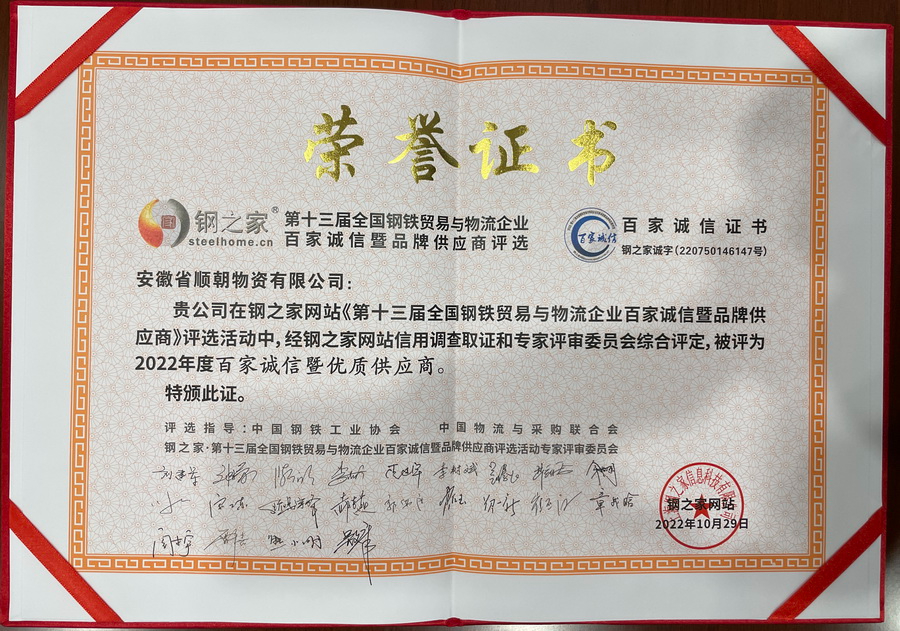 荣誉证书
钢之家®
steelhome.cn
第十三届全国钢铁贸易与物流企业
百家诚信暨品牌供应商评选
百家诚信
百家诚信证书
钢之家诚字(220750146147号)
安徽省顺朝物资有限公司:
贵公司在钢之家网站《第十三届全国钢铁贸易与物流企业百家诚信暨品牌供
应商》评选活动中,经钢之家网站信用调查取证和专家评审委员会综合评定,被评为
2022年度百家诚信暨优质供应商。
特颁此证。
评选指导:中国钢铁工业协会 中国物流与采购联合会
钢之家·第十三届全国钢铁贸易与物流企业百家诚信暨品牌供应商评选活动专家评审委员会
钢之家网站
2022年10月29日